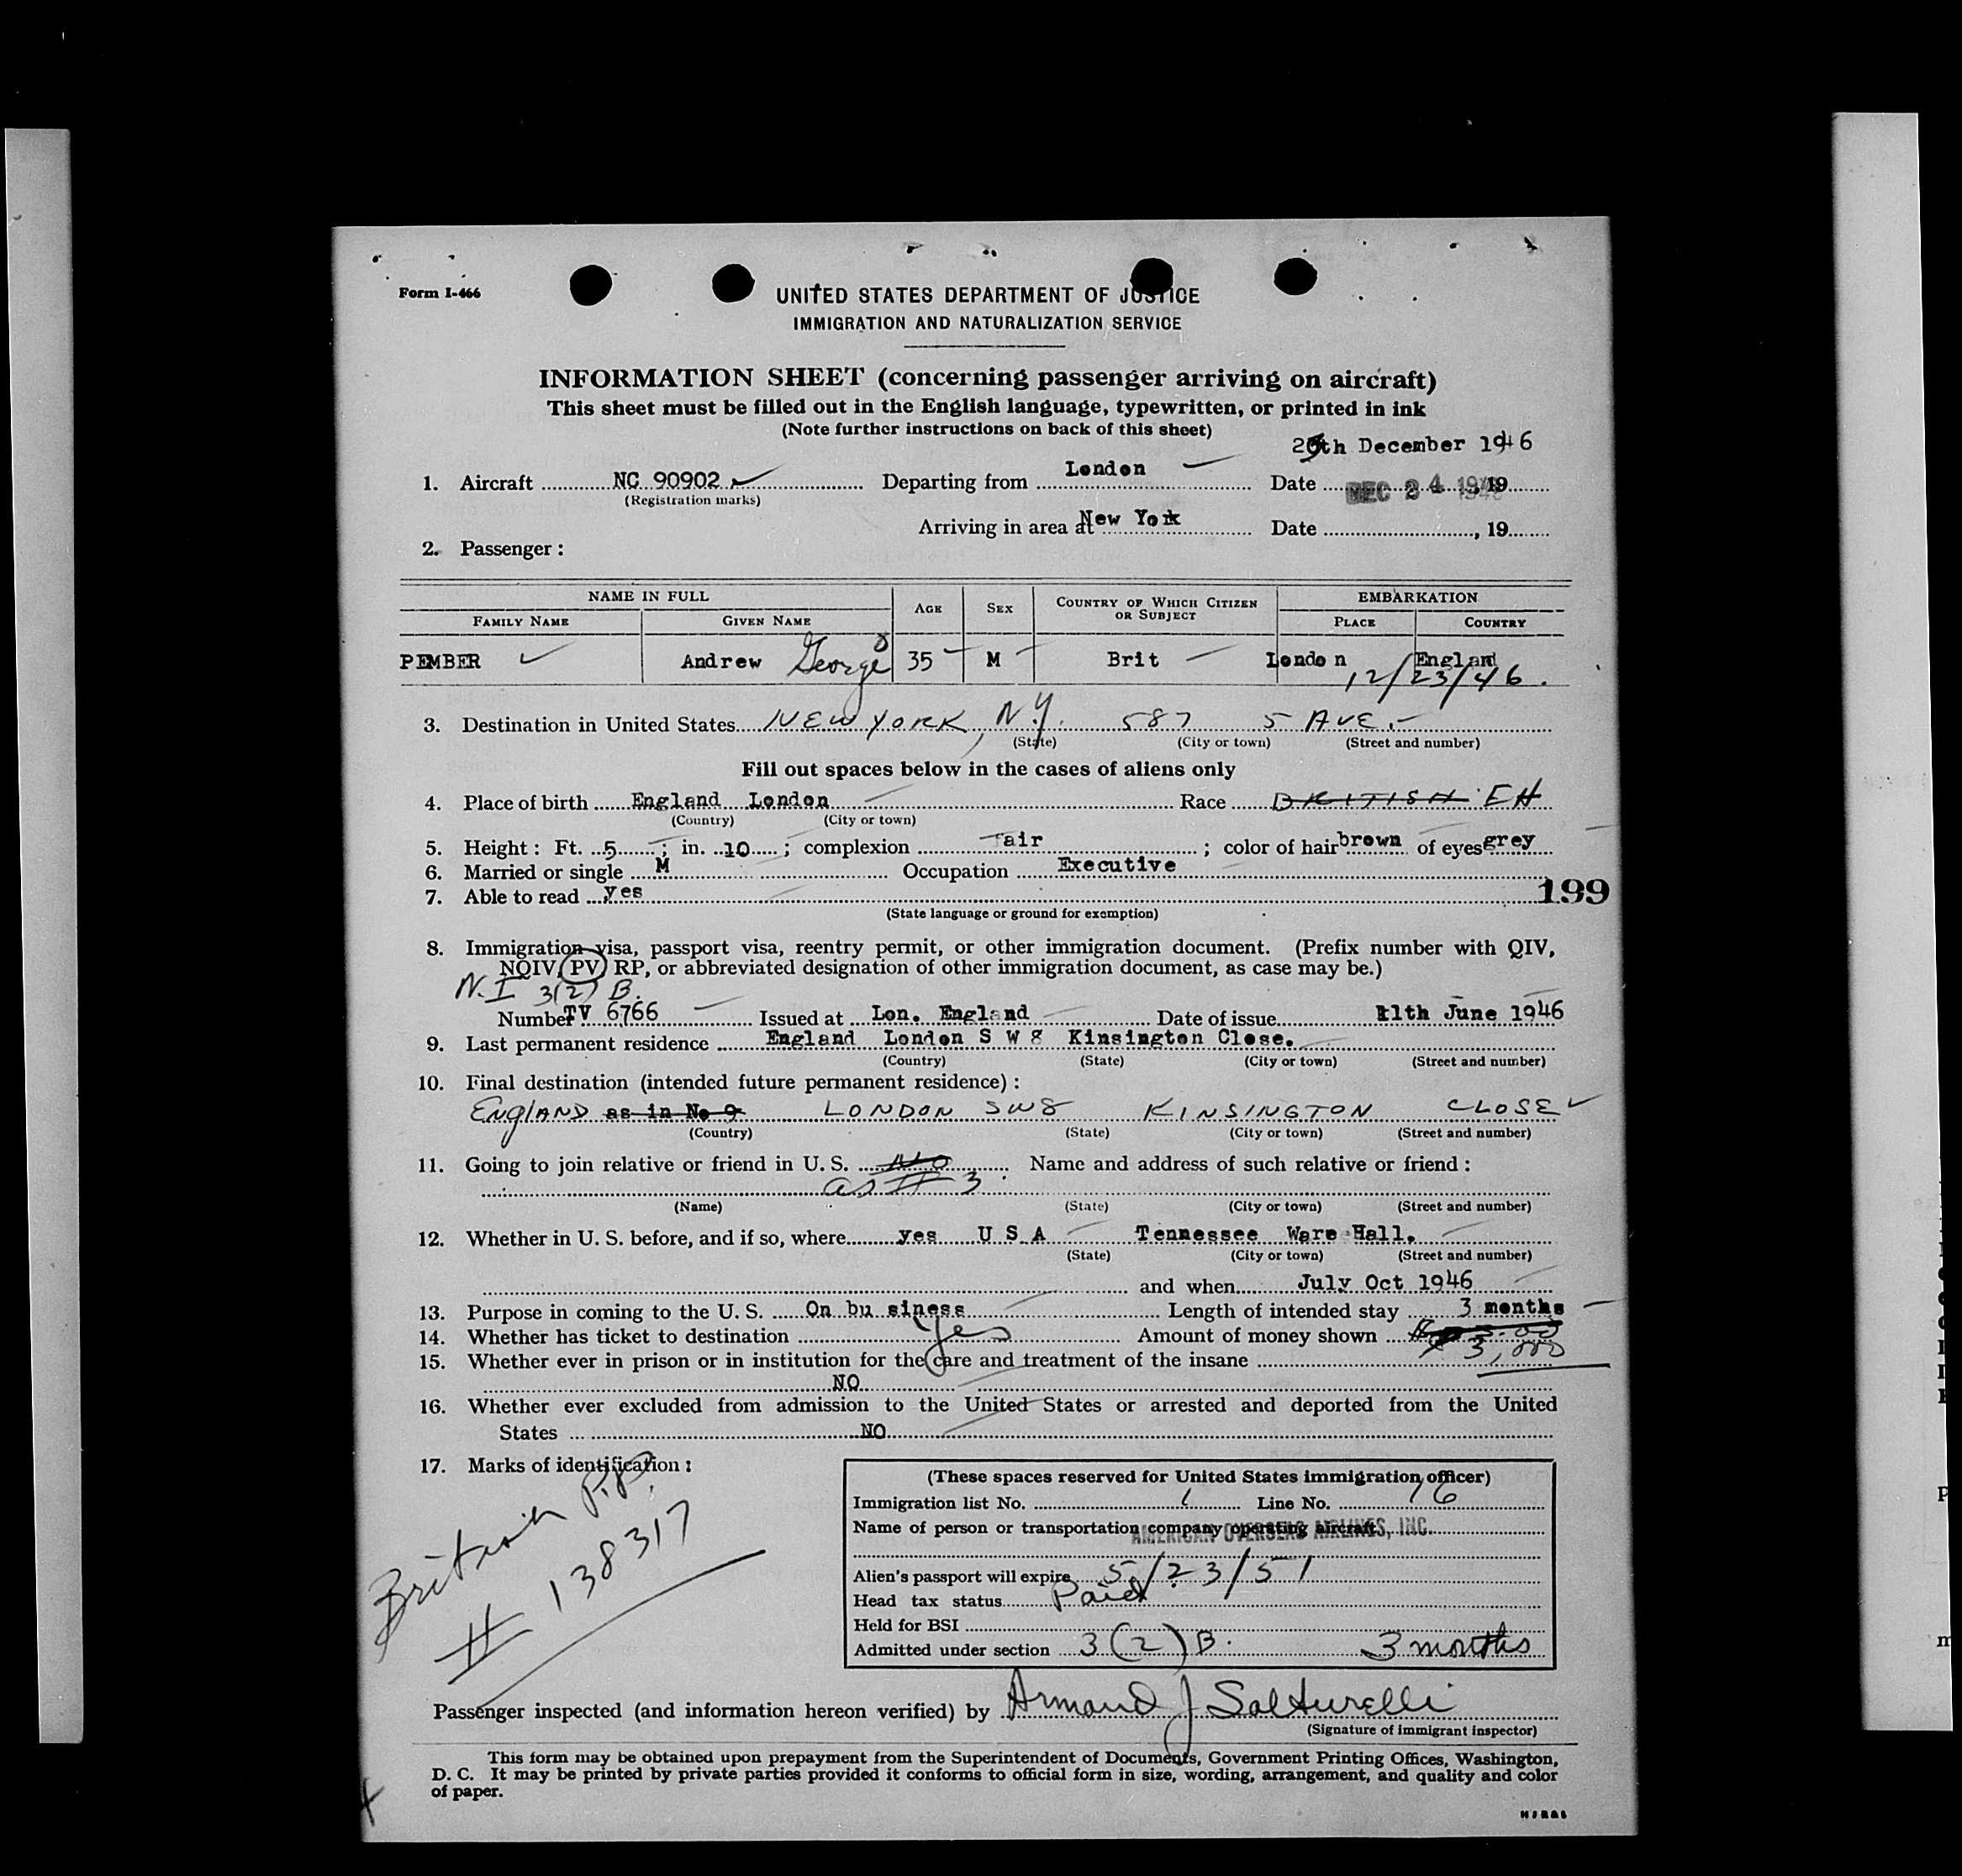 Form I-466
UNITED STATES DEPARTMENT OF JUSTICE
IMMIGRATION AND NATURALIZATION SERVICE
INFORMATION SHEET (concerning passenger arriving on aircraft)
This sheet must be filled out in the English language, typewritten, or printed in ink
(Note further instructions on back of this sheet)
December 1946
1. Aircraft NC 90902 Departing from London Date DEC 24 1946, 19
(Registration marks)
Arriving in area at New York Date , 19
2. Passenger:
NAME IN FULL AGE SEX COUNTRY OF WHICH CITIZEN OR SUBJECT EMBARKATION
FAMILY NAME GIVEN NAME PLACE COUNTRY
PEMBER Andrew George 35 M Brit London England
12/23/46.
3. Destination in United States NEW YORK, N.Y. 587 5 AVE.
(State) (City or town) (Street and number)
Fill out spaces below in the cases of aliens only
4. Place of birth England London Race BRITISH EH
(Country) (City or town)
5. Height: Ft. 5; in. 10; complexion fair; color of hair brown of eyes grey
6. Married or single M Occupation Executive
7. Able to read yes 199
(State language or ground for exemption)
8. Immigration visa, passport visa, reentry permit, or other immigration document. (Prefix number with QIV,
NQIV, PV, RP, or abbreviated designation of other immigration document, as case may be.)
N.I 3(2) B.
Number TV 6766 Issued at Lon. England Date of issue 11th June 1946
9. Last permanent residence England London S W 8 Kinsington Close.
(Country) (State) (City or town) (Street and number)
10. Final destination (intended future permanent residence):
ENGLAND as in No 9 LONDON SW8 KINSINGTON CLOSE
(Country) (State) (City or town) (Street and number)
11. Going to join relative or friend in U. S. NO Name and address of such relative or friend:
as # 3
(Name) (State) (City or town) (Street and number)
12. Whether in U. S. before, and if so, where yes U S A Tennessee Ware Hall.
(State) (City or town) (Street and number)
and when July Oct 1946
13. Purpose in coming to the U. S. On bu siness Length of intended stay 3 months
14. Whether has ticket to destination Yes Amount of money shown 3,000
15. Whether ever in prison or in institution for the care and treatment of the insane
NO
16. Whether ever excluded from admission to the United States or arrested and deported from the United
States NO
17. Marks of identification:
British P.P.
# 138317
(These spaces reserved for United States immigration officer)
Immigration list No. 1 Line No. 16
Name of person or transportation company operating aircraft
AMERICAN OVERSEAS AIRLINES, INC.
Alien's passport will expire 5/23/51
Head tax status Paid
Held for BSI
Admitted under section 3(2) B. 3 months
Passenger inspected (and information hereon verified) by Armand J Salturelli
(Signature of immigrant inspector)
This form may be obtained upon prepayment from the Superintendent of Documents, Government Printing Offices, Washington,
D. C. It may be printed by private parties provided it conforms to official form in size, wording, arrangement, and quality and color
of paper.